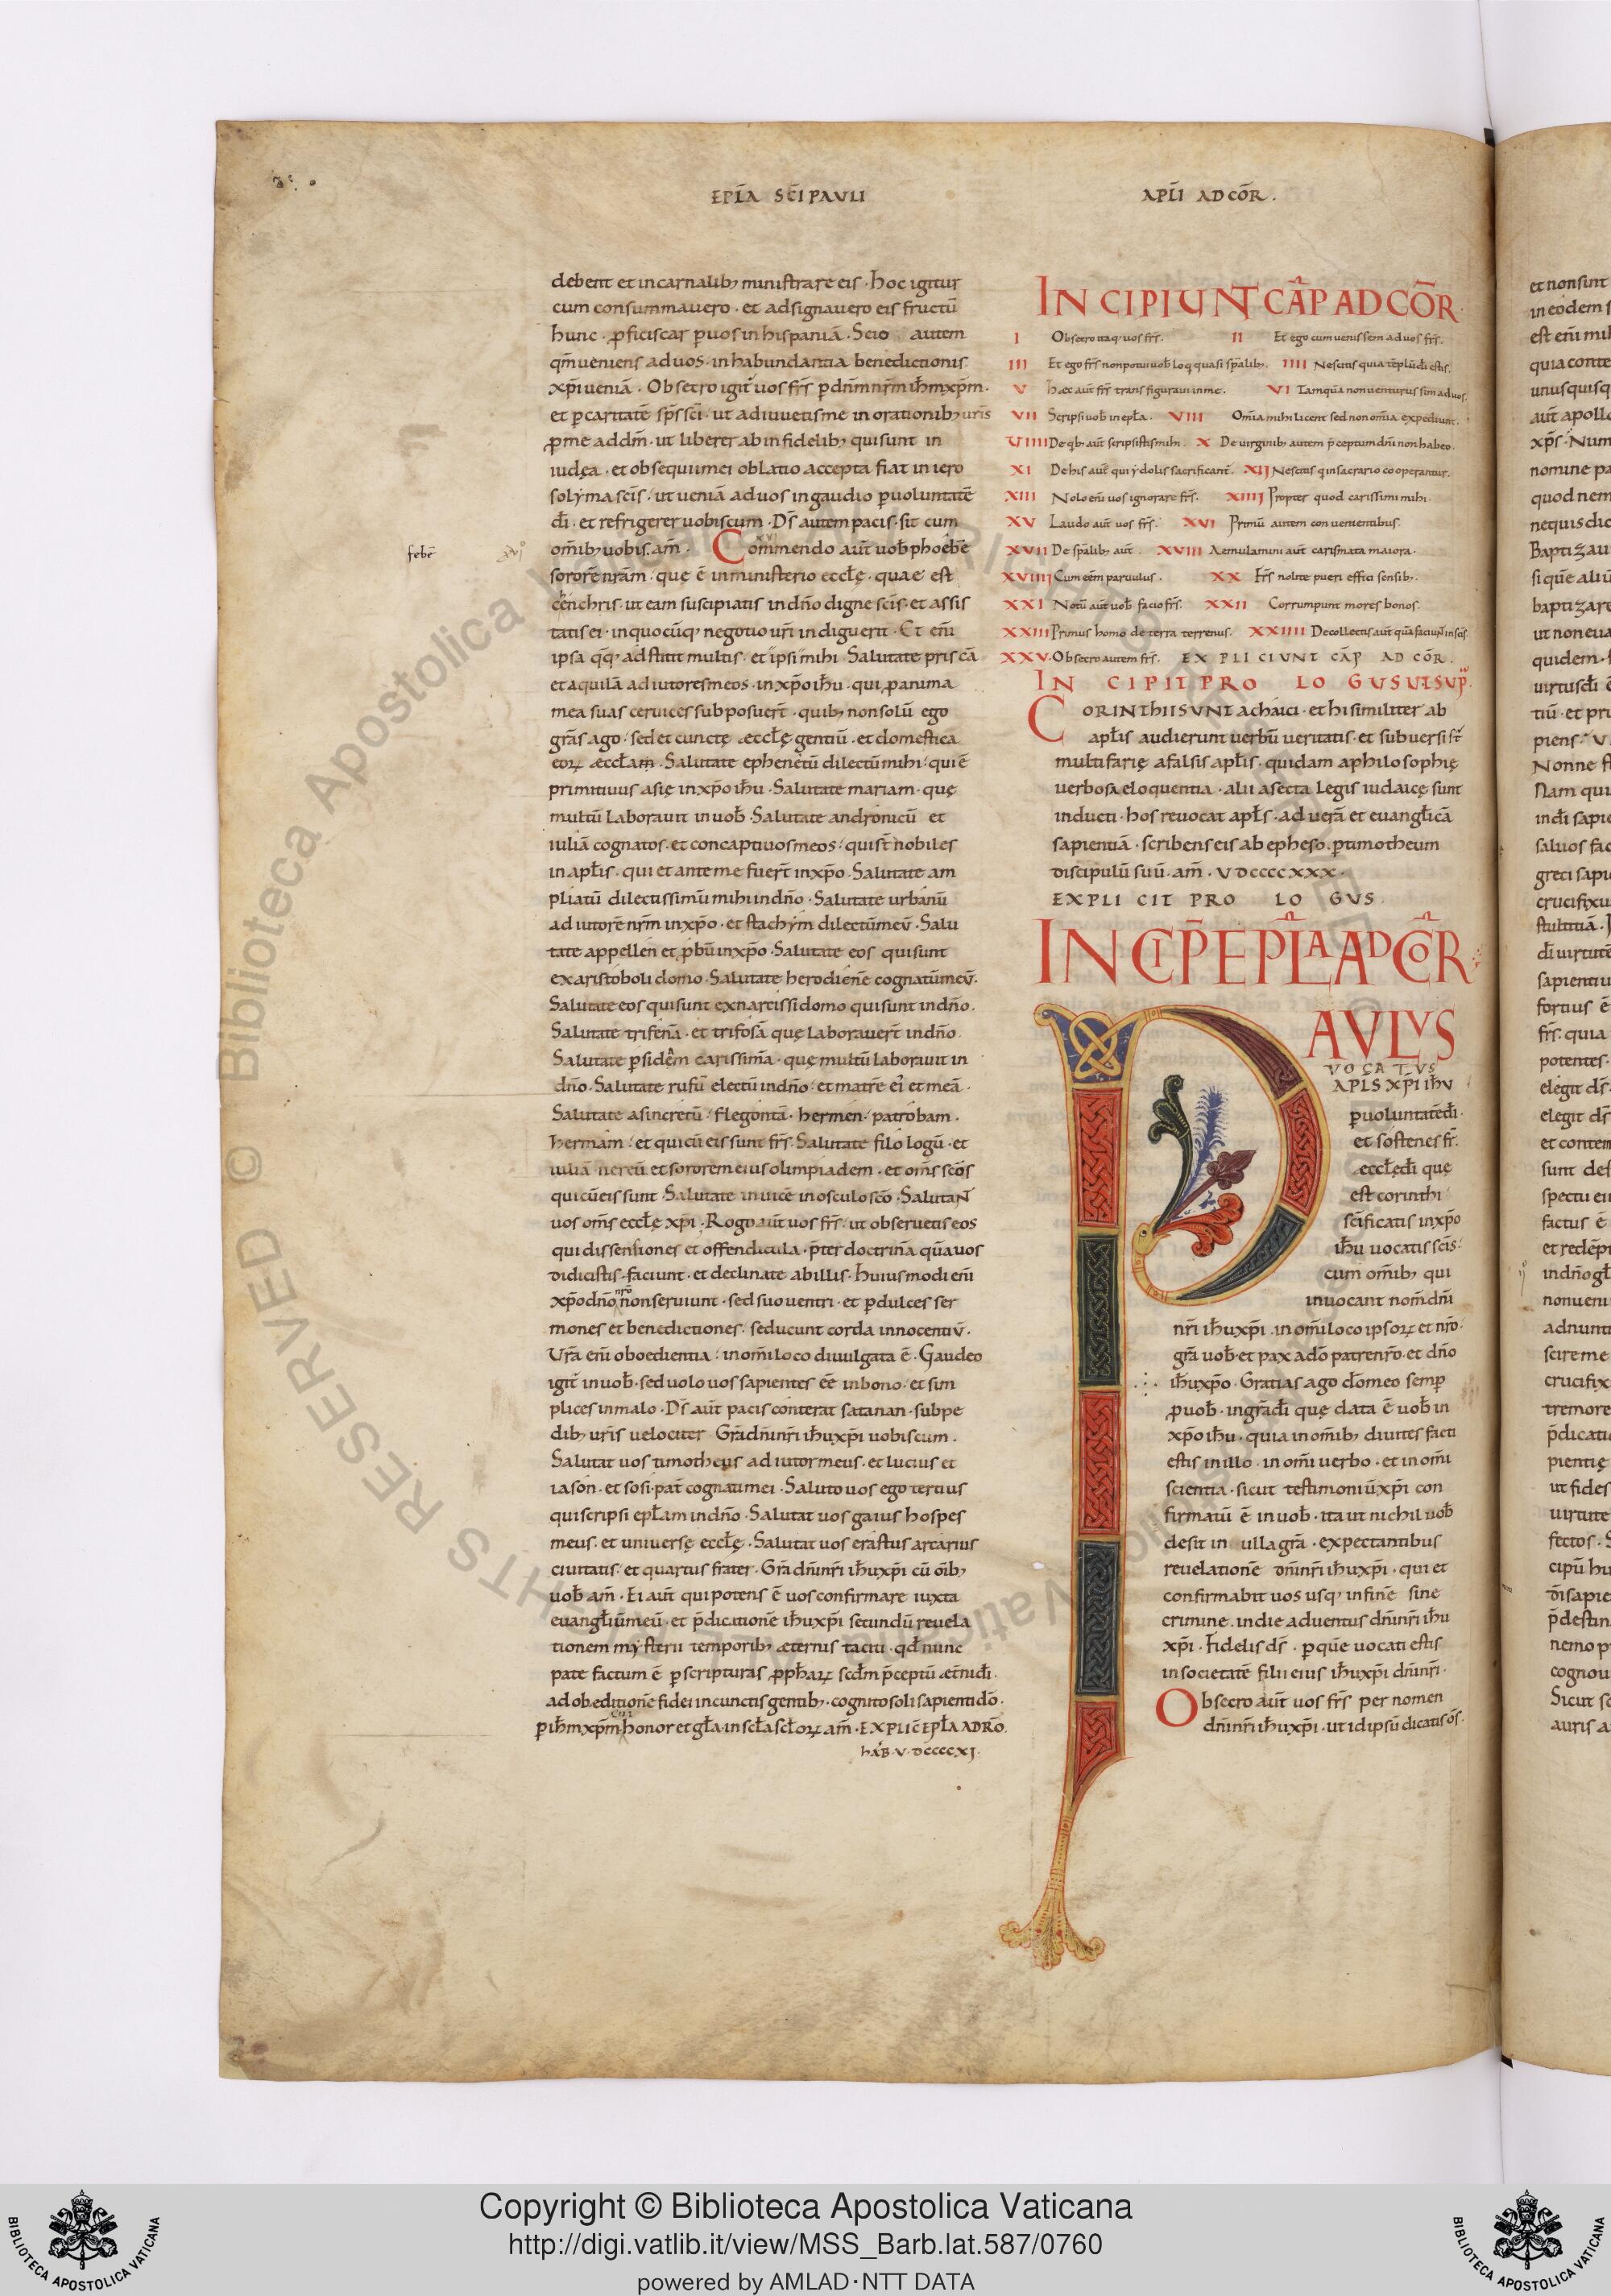 EPĪA SC̄I PAVLI
APL̄I AD COR̄.
debent et incarnalib; ministrare eis. hoc igitur
cum consummauero. et adsignauero eis fructū
hunc. ꝓficiscar ꝑuos in hispaniā. Scio autem
qm̄ ueniens aduos. in habundantia benedictionis
xp̄i ueniā. Obsecro igit̄ uos fr̄s ꝑ dn̄m nr̄m ih̄m xp̄m.
et ꝑ caritatē sp̄s sc̄i. ut adiuuetis me in orationib; uris
ꝓ me ad dm̄. ut liberer ab infidelib; qui sunt in
iudęa. et obsequii mei oblatio accepta fiat in iero
solyma sc̄is. ut ueniā aduos in gaudio ꝑ uoluntatē
dī. et refrigerer uobiscum. Ds̄ autem pacis. sit cum
febē
om̄ib; uobis. am̄. Commendo aut̄ uob̄ phoebēe
sororē nr̄am. quę ē in ministerio eccłę. quae est
cenchris. ut eam suscipiatis in dn̄o digne sc̄is. et assis
tatis ei. in quocūq; negotio ur̄i indiguerit. Et eni
ipsa q̄q; adstitit multis. et ipsi mihi Salutate priscā
et aquilā adiutores meos. in xp̄o ih̄u. qui ꝓ anima
mea suas ceruices subposuert̄. quib; non solū ego
gr̄as ago. sed et cunctę eccłę gentiū. et domestica
eoꝝ eccłam̄. Salutate ephenetū dilectū mihi. qui ē
primitiuus asię in xp̄o ih̄u. Salutate mariam. quę
multū laborauit in uob̄. Salutate andronicū et
iuliā cognatos. et concaptiuos meos. qui st̄ nobiles
in apłis. qui et ante me fuert̄ in xp̄o. Salutate am
pliatū dilectissimū mihi in dn̄o. Salutate urbanū
adiutorē nr̄m in xp̄o. et stachym dilectū meū. Salu
tate appellen et ꝓbū in xp̄o. Salutate eos qui sunt
ex aristoboli domo. Salutate herodienē cognatū meū.
Salutate eos qui sunt ex narcissi domo qui sunt in dn̄o.
Salutate trifenā. et trifosā quę laborauert̄ in dn̄o.
Salutate ꝑsidēm carissimā. quę multū laborauit in
dn̄o. Salutate rufū electū in dn̄o. et matrē ei et meā.
Salutate asincretū. flegontā. hermen. patrobam.
hermam. et qui cū eis sunt fr̄s. Salutate filologū. et
iuliā nereū et sororem eius olimpiadem. et om̄s sc̄os
qui cū eis sunt. Salutate inuicē in osculo sc̄o. Salutan̄t
uos om̄s eccłę xp̄i. Rogo aut̄ uos fr̄s. ut obseruetis eos
qui dissensiones et offendicula. p̄ter doctrinā quā uos
didicistis. faciunt. et declinate ab illis. huiusmodi eni
nr̄o
xp̄o dn̄o non seruiunt. sed suo uentri. et ꝑ dulces ser
mones et benedictiones. seducunt corda innocentiū.
Ur̄a eni oboedientia. in om̄i loco diuulgata ē. Gaudeo
igit̄ in uob̄. sed uolo uos sapientes ee in bono. et sim
plices in malo. Ds̄ aut̄ pacis conterat satanan. sub pe
dib; ur̄is uelociter Gr̄a dn̄i nr̄i ih̄u xp̄i uobiscum.
Salutat uos timotheus adiutor meus. et lucius et
iason. et sosipat̄ cognati mei. Saluto uos ego tertius
qui scripsi epłam in dn̄o. Salutat uos gaius hospes
meus. et uniuersę eccłę. Salutat uos erastus arcarius
ciuitatis. et quartus frater. Gr̄a dn̄i nr̄i ih̄u xp̄i cū om̄ib;
uob̄ am̄. Ei aut̄ qui potens ē uos confirmare iuxta
euangłiū meū. et p̄dicationē ih̄u xp̄i secundū reuela
tionem mysterii temporib; aeternis taciti. qd̄ nunc
patefactum ē ꝑ scripturas ꝓphaꝝ scd̄m p̄ceptū aet̄ni dī.
ad obeditionē fidei in cunctis gentib;. cognito soli sapienti dō.
cui
ꝑ ih̄m xp̄m honor et gła. in scła scłoꝝ am̄. EXPLIC̄ EPŁA AD RŌ.
HAB̄. V. DCCCCXI.
INCIPIUNT CAP̄ AD COR̄.
I Obsecro itaq; uos fr̄s. II Et ego cum uenissem aduos fr̄s.
III Et ego fr̄s non potui uob̄ loqi quasi sp̄alib;. IIII Nescitis quia tēplū dī estis.
V Haec aut̄ fr̄s transfiguraui in me. VI Tamquā non uenturus sim aduos.
VII Scripsi uob̄ in epła. VIII Om̄ia mihi licent sed non om̄ia expediunt.
VIIII De qb; aut̄ scripsistis mihi. X De uirginib; autem p̄ceptum dn̄i non habeo.
XI De his aut̄ qui ydolis sacrificant̄. XII Nescitis qi in sacrario cooperantur.
XIII Nolo eni uos ignorare fr̄s. XIIII Propter quod carissimi mihi.
XV Laudo aut̄ uos fr̄s. XVI Primū autem conuenientibus.
XVII De sp̄alib; aut̄. XVIII Aemulamini aut̄ carismata maiora.
XVIIII Cum eēm paruulus. XX Fr̄s nolite pueri effici sensib;.
XXI Notū aut̄ uob̄ facio fr̄s. XXII Corrumpunt mores bonos.
XXIII Primus homo de terra terrenus. XXIIII De collectis aut̄ quā faciunt̄ in sc̄is.
XXV. Obsecro autem fr̄s. EXPLICIUNT CAP̄ AD COR̄.
INCIPIT PROLOGUS UT SUP̄.
CORINTHII SUNT achaici. et hi similiter ab
apłis audierunt uerbū ueritatis. et subuersi st̄
multifarię a falsis apłis. quidam a philosophię
uerbosa eloquentia. alii a secta legis iudaicę sunt
inducti. hos reuocat apłs. ad uerā et euangłicā
sapientiā. scribens eis ab epheso. ꝑ timotheum
discipulū suū. am̄. VDCCCCXXX.
EXPLICIT PROLOGUS.
INCIP̄ EPŁA AD COR̄
PAULUS
VOCATVS
APLS XP̄I IH̄V
ꝑ uoluntatē dī.
et sostenes fr̄.
eccłę dī quę
est corinthi
sc̄ificatis in xp̄o
ih̄u uocatis sc̄is.
cum om̄ib; qui
inuocant nom̄ dn̄i
nr̄i ih̄u xp̄i. in om̄i loco ipsoꝝ et nr̄o.
gr̄a uob̄. et pax a dō patre nr̄o. et dn̄o
ih̄u xp̄o. Gratias ago dō meo semꝑ
ꝓ uob̄. in gr̄a dī quę data ē uob̄ in
xp̄o ih̄u. quia in om̄ib; diuites facti
estis in illo. in om̄i uerbo. et in om̄i
scientia. sicut testimoniū xp̄i con
firmatū ē in uob̄. ita ut nichil uob̄
desit in ulla gr̄a. expectantibus
reuelationē dn̄i nr̄i ih̄u xp̄i. qui et
confirmabit uos usq; in finē sine
crimine. in die aduentus dn̄i nr̄i ih̄u
xp̄i. Fidelis ds̄. ꝑ quē uocati estis
in societatē filii eius ih̄u xp̄i dn̄i nr̄i.
Obsecro aut̄ uos fr̄s per nomen
dn̄i nr̄i ih̄u xp̄i. ut id ipsū dicatis om̄s.
Copyright © Biblioteca Apostolica Vaticana
http://digi.vatlib.it/view/MSS_Barb.lat.587/0760
powered by AMLAD · NTT DATA
BIBLIOTECA APOSTOLICA VATICANA
BIBLIOTECA APOSTOLICA VATICANA